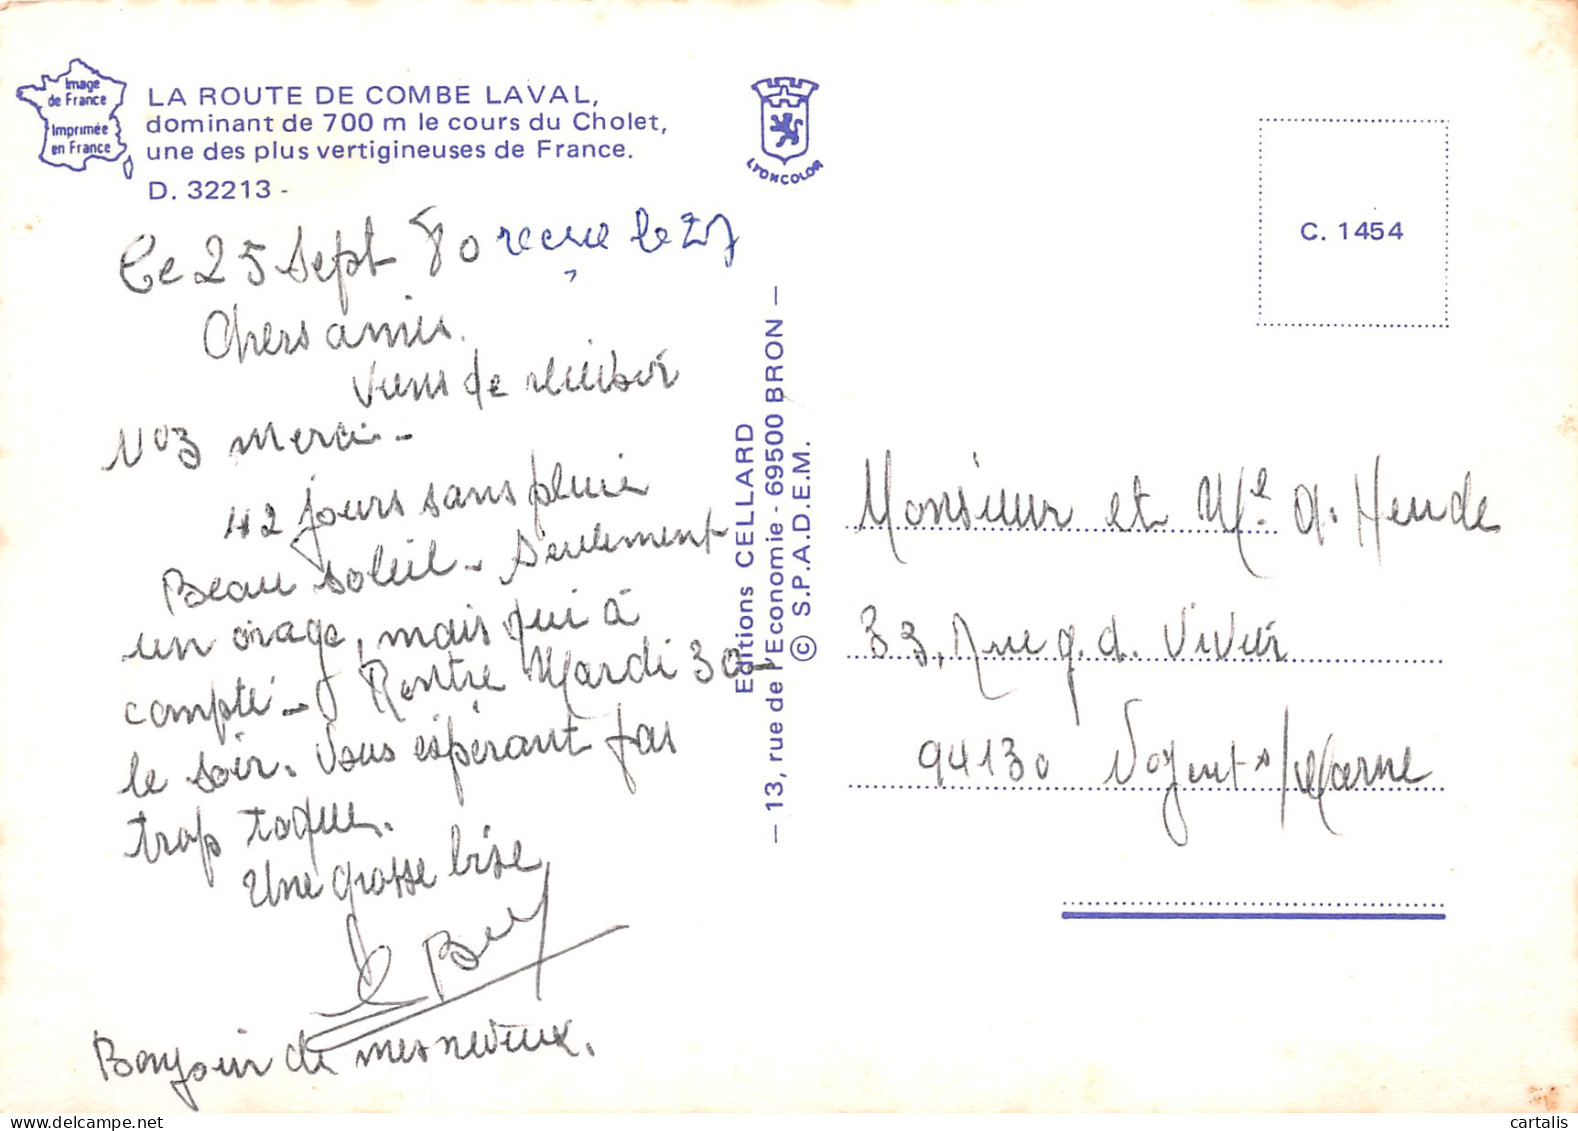 Image
de France
Imprimée
en France
LA ROUTE DE COMBE LAVAL,
dominant de 700 m le cours du Cholet,
une des plus vertigineuses de France.
D. 32213 -
LYONCOLOR
C. 1454
Ce 25 Sept 80 recue le 27
Chers amis.
Viens de
nos merci -
42 jours sans pluie
Beau soleil - Seulement
un orage, mais qui à
compté - Rentre Mardi 30 -
le soir. Vous espérant pas
trop
Une grosse bise
Bonjour de mes neveux.
Editions CELLARD
— 13, rue de l'Economie - 69500 BRON —
© S.P.A.D.E.M.
Monsieur et Me. a. Heude
33, Rue g. d. Vivier
94130 Nogent s/Marne
cartalis